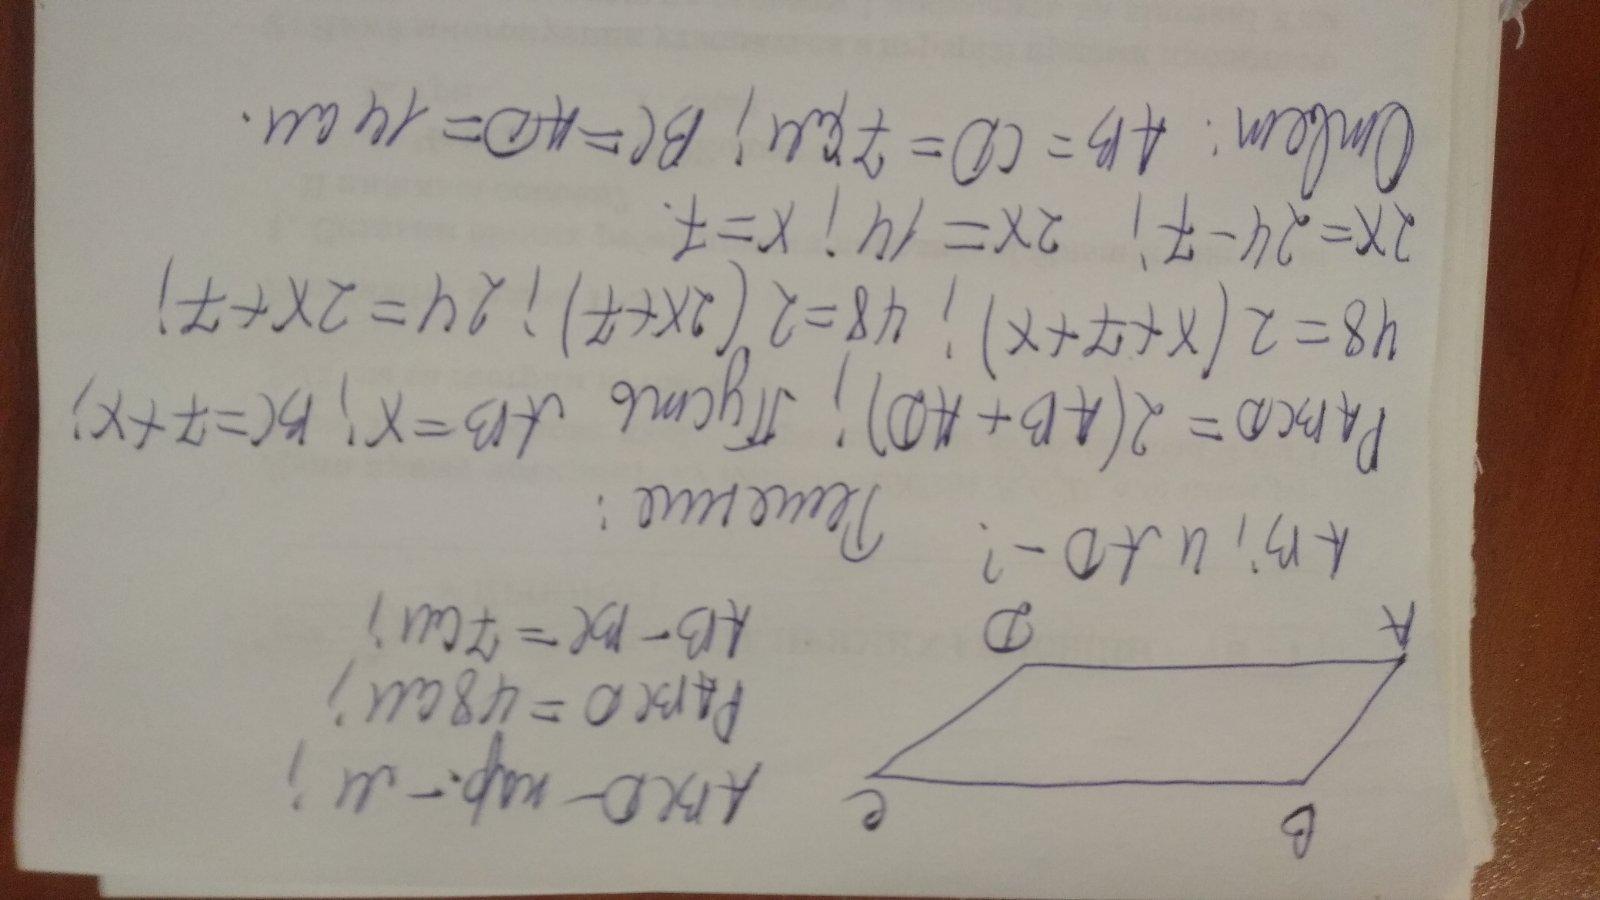 B
C
A
D
ABCD - пар.-м;
PABCD = 48см;
AB - BC = 7см;
AB; и AD - ?
Решение:
PABCD = 2(AB + AD); Пусть AB = x; BC = 7 + x;
48 = 2(x+7+x); 48 = 2(2x+7); 24 = 2x+7;
2x = 24 - 7; 2x = 14; x = 7.
Ответ: AB = CD = 7см; BC = AD = 14см.